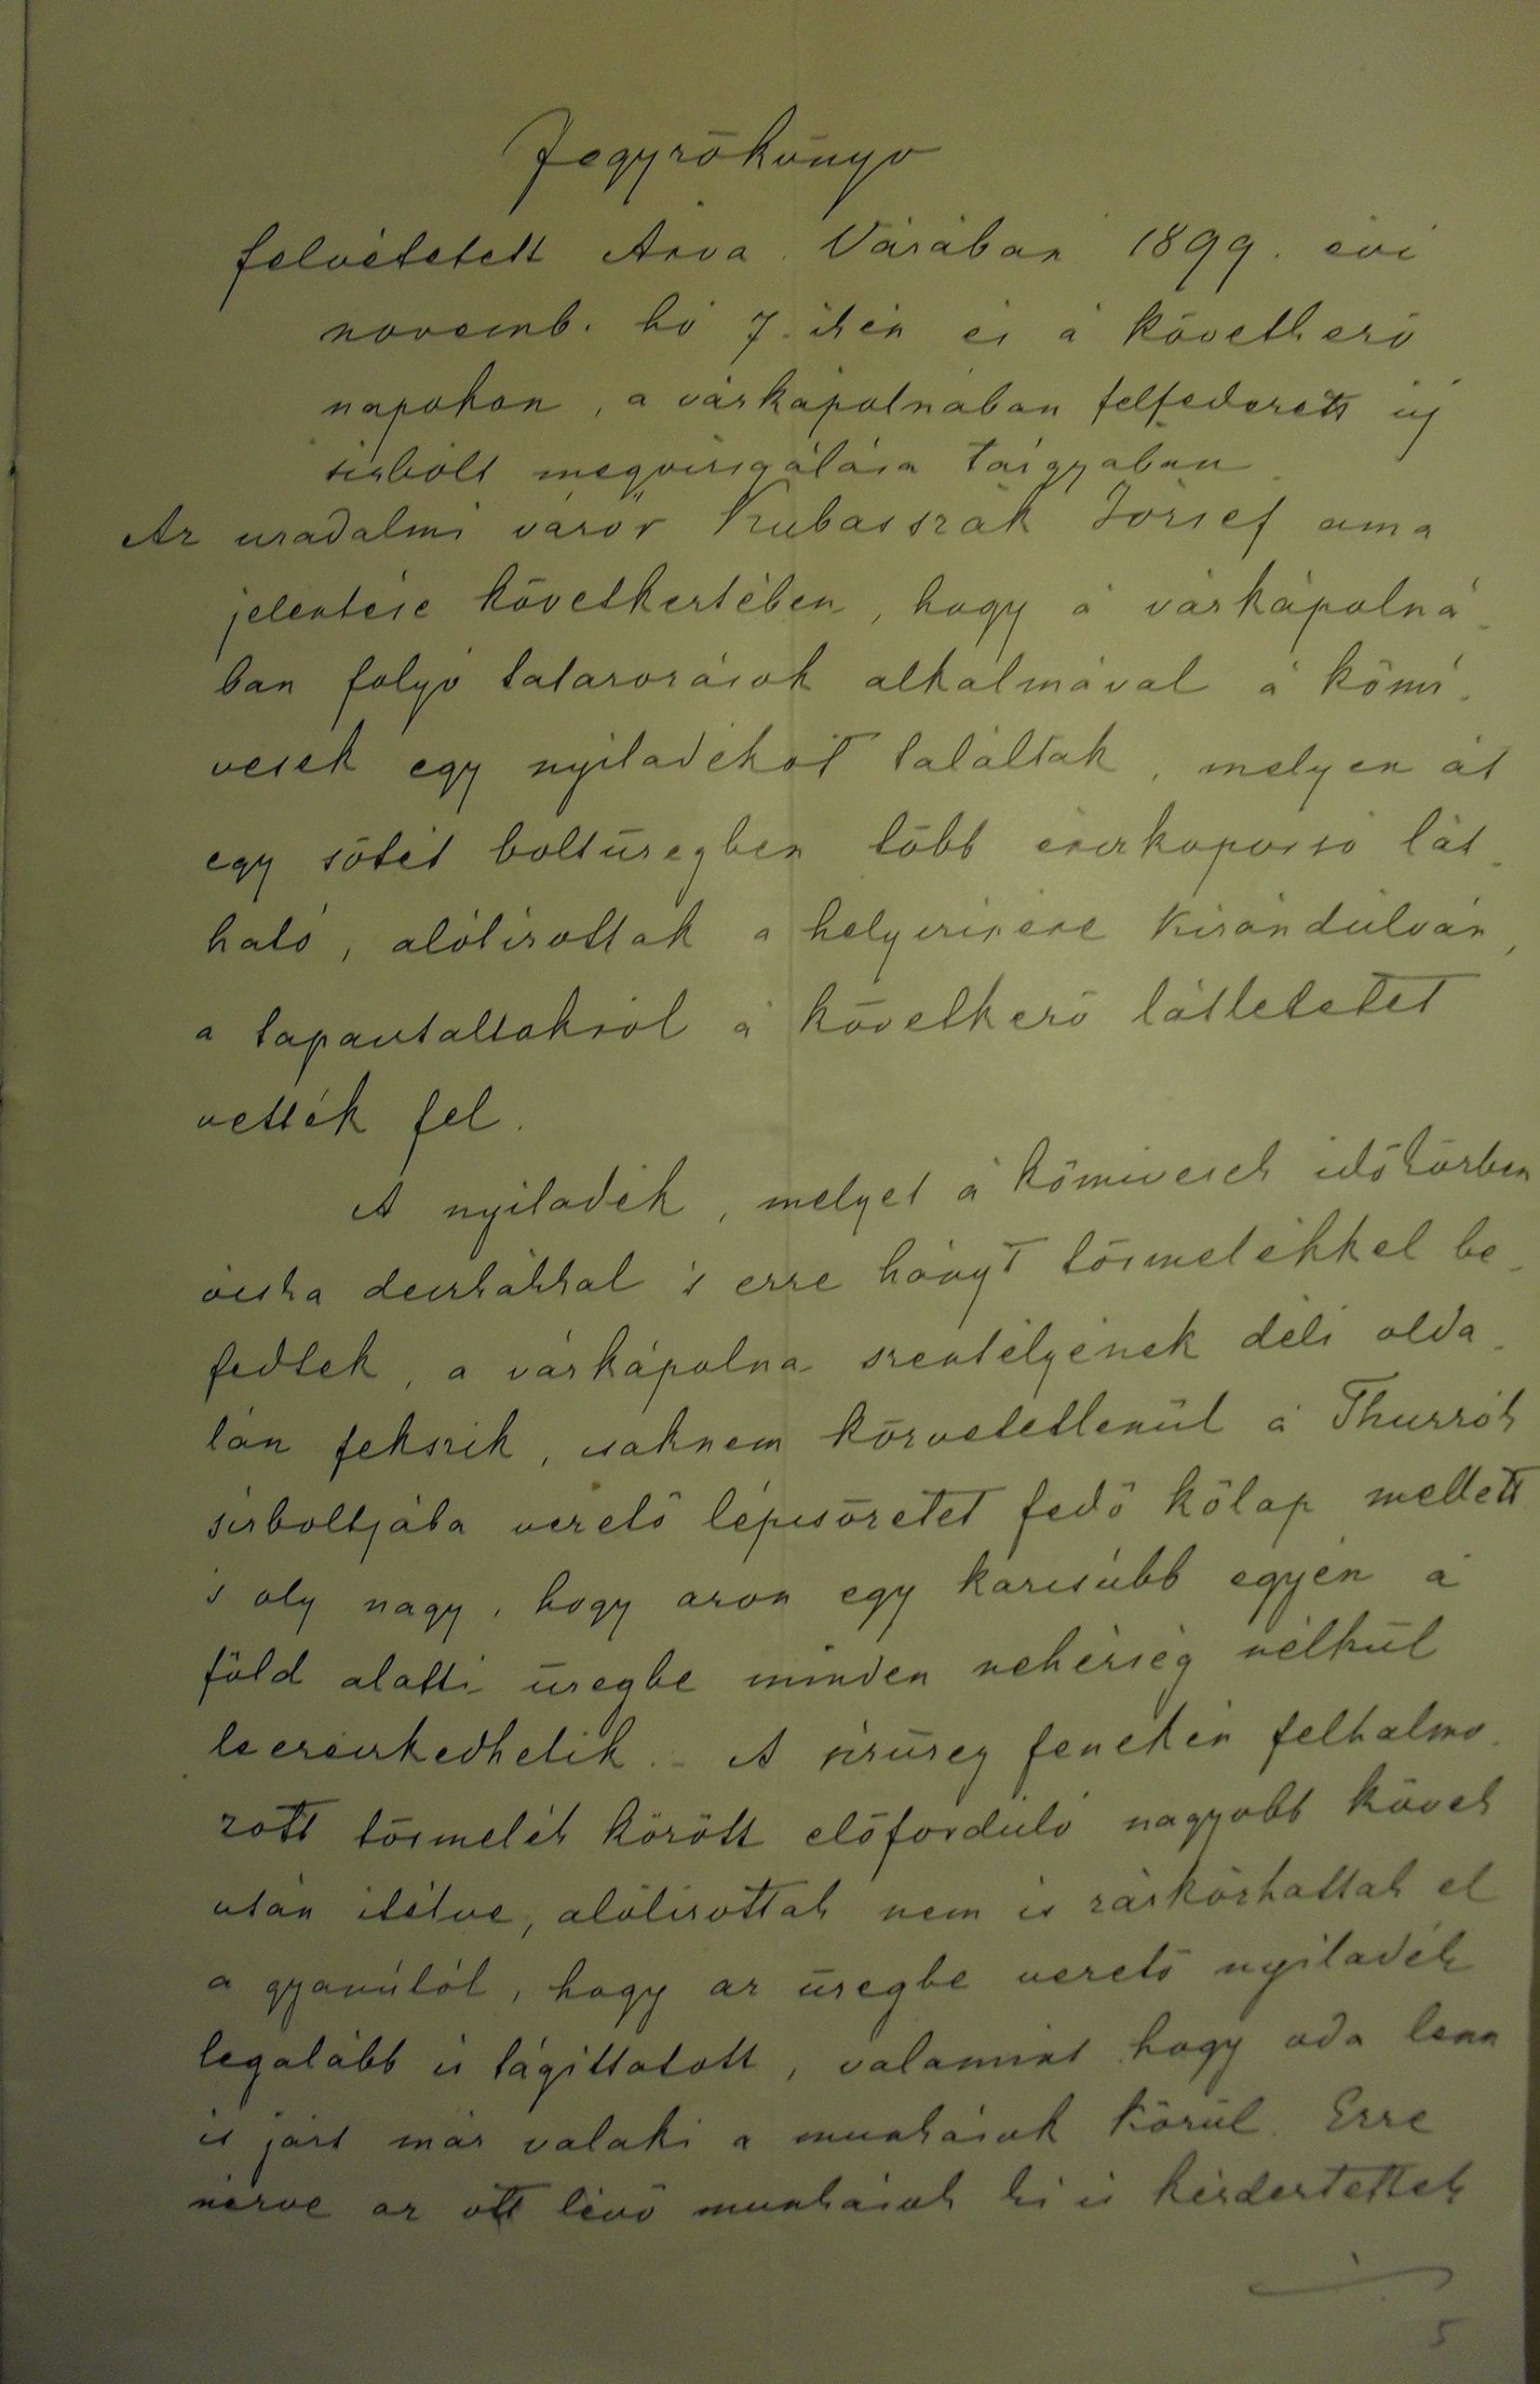 Jegyzőkönyv
felvétetett Árva Várában 1899. évi
novemb. hó 7. ikén és a következő
napokon, a várkápolnában felfedezett új
sirbolt megvizsgálása tárgyában
Az uradalmi várőr Kubasszák József ama
jelentése következtében, hogy a várkápolná-
ban folyó tatarozások alkalmával a kőmí-
vesek egy nyiladékot találtak, melyen át
egy sötét boltüregben több érczkoporsó lát-
ható, alólirottak a helyszinére kirándúlván,
a tapasztaltakról a következő látleletet
vették fel.
A nyiladék, melyet a kőmivesek időközben
ócska deszkákkal s erre hányt törmelékkel be-
fedtek, a várkápolna szentélyének déli olda-
lán fekszik, csaknem közvetetlenül a Thurzók
sirboltjába vezető lépcsőzetet fedő kőlap mellett
s oly nagy, hogy azon egy karcsúbb egyén a
föld alatti üregbe minden nehézség nélkül
leereszkedhetik. - A sirüreg fenekén felhalmo-
zott törmelék között előforduló nagyobb kövek
után itélve, alólirottak nem is zárkózhattak el
a gyanútól, hogy az üregbe vezető nyiladék
legalább is tágittatott, valamint hogy oda lenn
is járt már valaki a munkások közül. Erre
nézve az ott lévő munkások ki is kérdeztettek
5